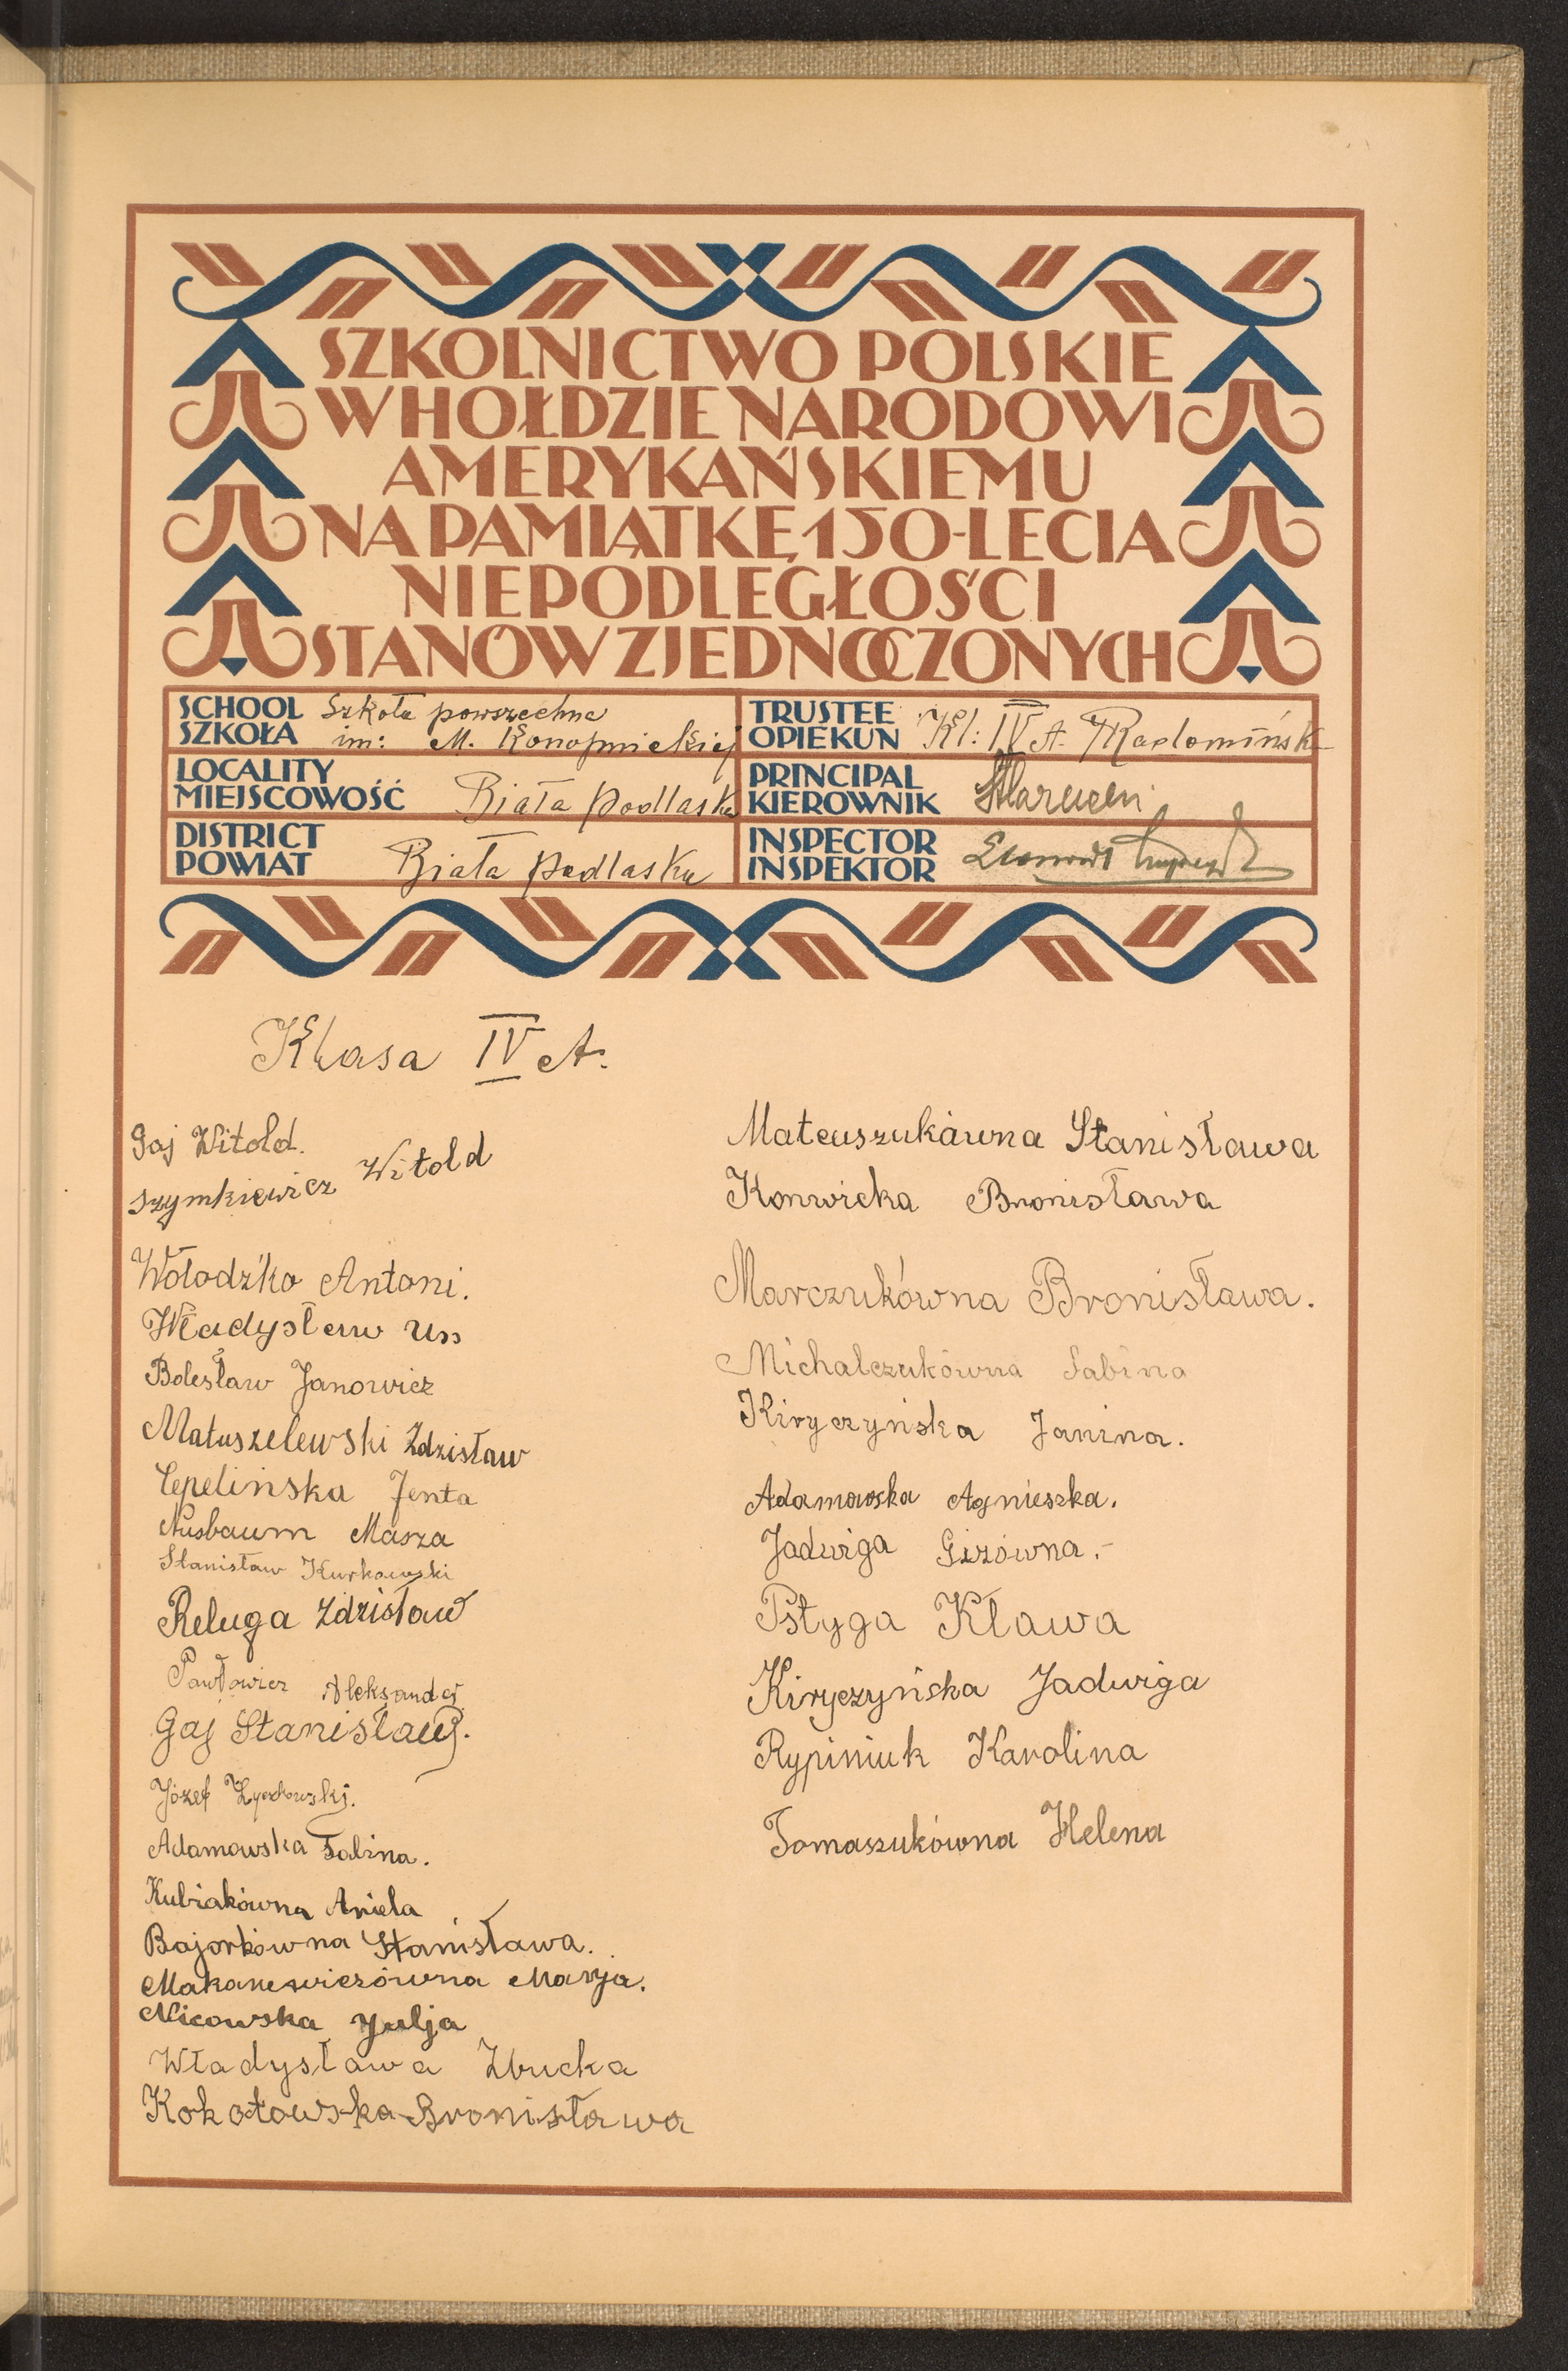 SZKOLNICTWO POLSKIE
W HOŁDZIE NARODOWI
AMERYKAŃSKIEMU
NA PAMIĄTKĘ 150-LECIA
NIEPODLEGŁOŚCI
STANÓW ZJEDNOCZONYCH
SCHOOL
SZKOŁA
Szkoła powszechna
im: M. Konopnickiej
TRUSTEE
OPIEKUN
Kl: IV A.
LOCALITY
MIEJSCOWOŚĆ
Biała Podlaska
PRINCIPAL
KIEROWNIK
DISTRICT
POWIAT
Biała Podlaska
INSPECTOR
INSPEKTOR
Klasa IV A.
Gaj Witold.
Szymkiewicz Witold
Wołodźko Antoni.
Władysław Uss
Bolesław Janowicz
Matuszelewski Zdzisław
Cepelińska Jenta
Nusbaum Masza
Stanisław Kurkowski
Reluga Zdzisław
Pawłowicz Aleksander
Gaj Stanisław.
Józef
Adamowska Sabina.
Kubiakówna Aniela
Bajorkówna Stanisława.
Makarewiczówna Marja.
Nicowska Julja
Władysława Zbucka
Kokotowska Bronisława
Mateuszukówna Stanisława
Konwicka Bronisława
Marczukówna Bronisława.
Michalczukówna Sabina
Kiryczyńska Janina.
Adamowska Agnieszka.
Jadwiga Gizówna.-
Pstyga Klawa
Kiryczyńska Jadwiga
Rypiniuk Karolina
Tomaszukówna Helena